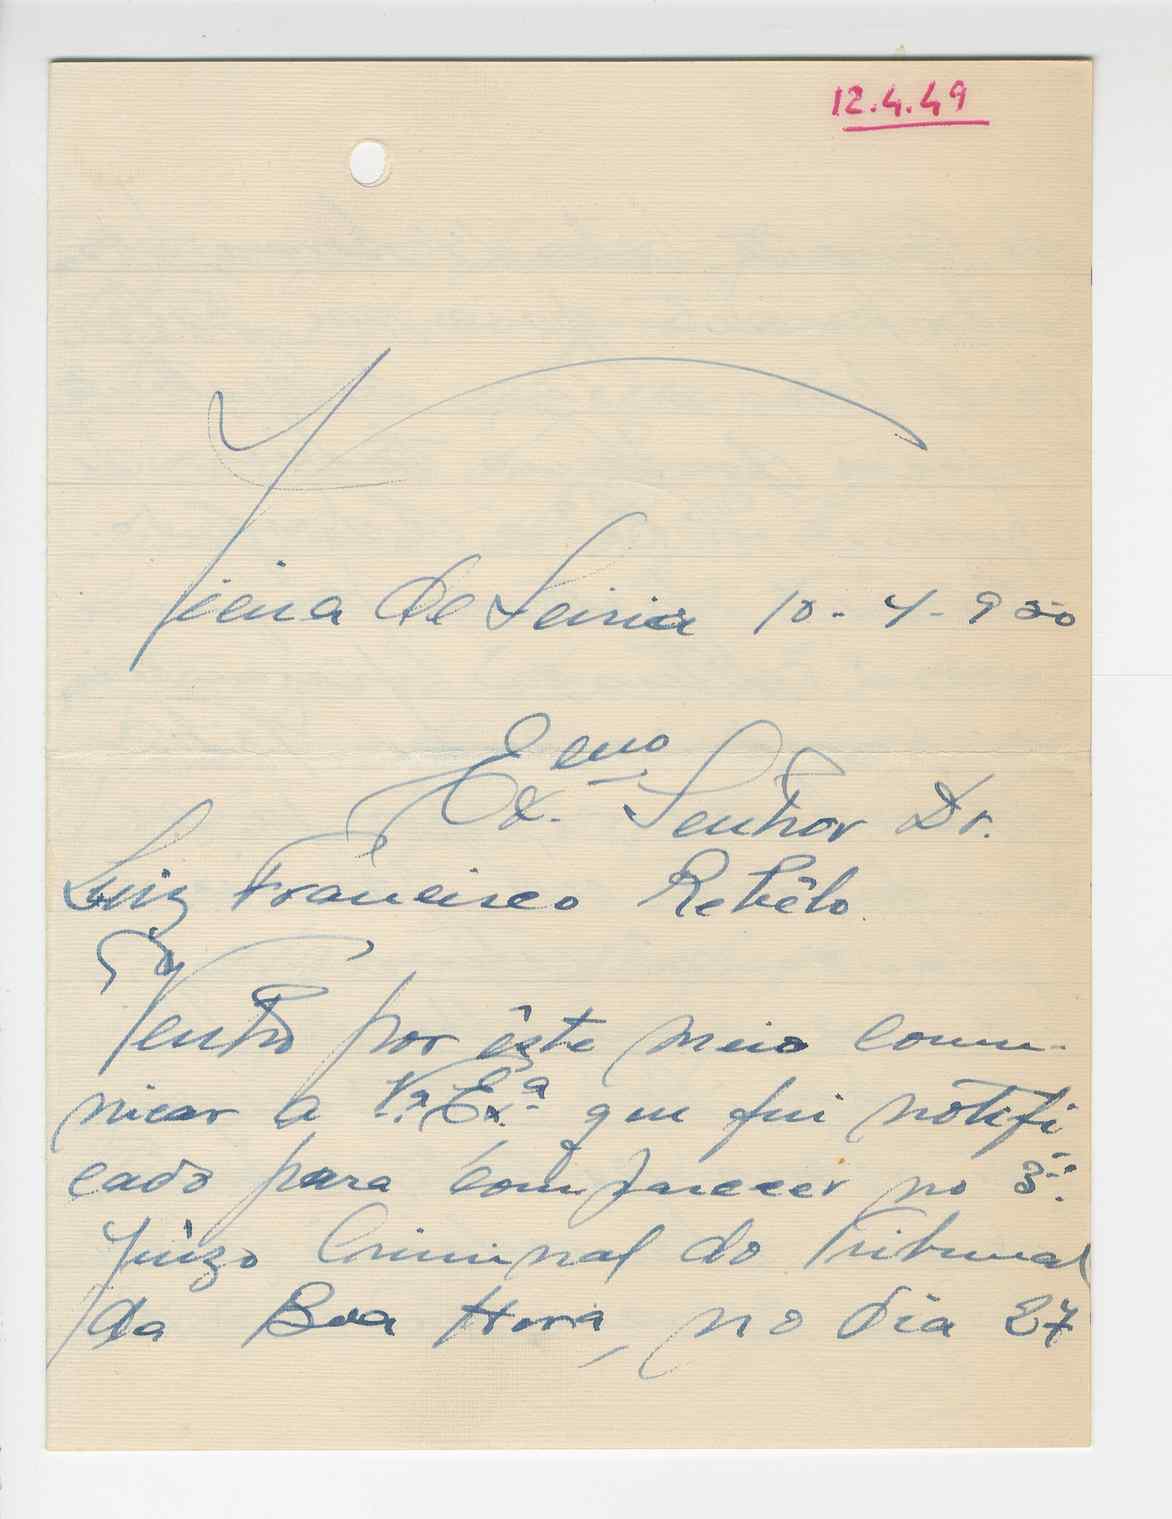 12.4.49
Vieira de Leiria 10-4-950
Exmo Senhor Dr.
Luiz Francisco Rebêlo
Venho por êste meio comu-
nicar a V.ª Ex.ª que fui notifi
cado para comparecer no 3º.
Juizo Criminal do Tribunal
da Boa Hora, no dia 27